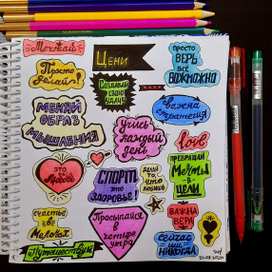 Мечтай
Цени
просто
ВЕРЬ
всё
ВОЗМОЖНО
Просто
делай!
Создавай
свою
удачу
МЕНЯЙ
ОБРАЗ
МЫШЛЕНИЯ
важна
стратегия
Учись
каждый
день
love
это
Любовь
СПОРТ
это
ЗДОРОВЬЕ!
делай
то, что
любишь
ПРЕВРАЩАЙ
Мечты
в
ЦЕЛИ
счастье
в
Мелочах
Просыпайся
в
четыре
утра
ВАЖНА
ВЕРА
Путешествуй
сейчас
или
НИКОГДА